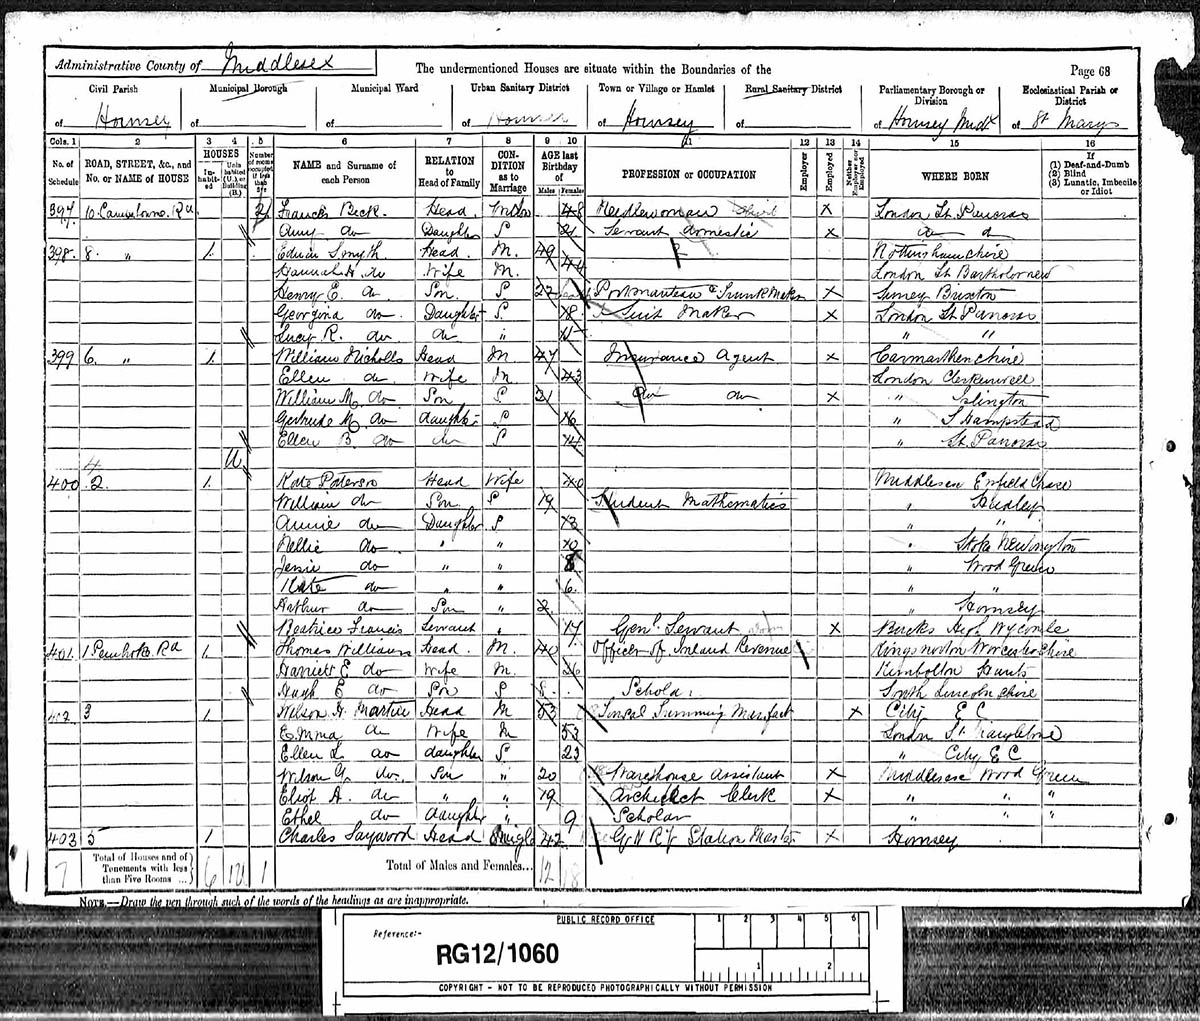 Administrative County of Middlesex
The undermentioned Houses are situate within the Boundaries of the
Page 68
Civil Parish
of Hornsey
Municipal Borough
of
Municipal Ward
of
Urban Sanitary District
of Hornsey
Town or Village or Hamlet
of Hornsey
Rural Sanitary District
of
Parliamentary Borough or Division
of Hornsey Middx
Ecclesiastical Parish or District
of St Marys
Cols. 1 2 3 4 5 6 7 8 9 10 11 12 13 14 15 16
No. of Schedule
ROAD, STREET, &c., and No. or NAME of HOUSE
HOUSES
In-habit-ed
Unin-habited (U.), or Building (B.)
Number of rooms occupied if less than five
NAME and Surname of each Person
RELATION to Head of Family
CON-DITION as to Marriage
AGE last Birthday of
Males Females
PROFESSION or OCCUPATION
Employer
Employed
Neither Employer nor Employed
WHERE BORN
If
(1) Deaf-and-Dumb
(2) Blind
(3) Lunatic, Imbecile or Idiot
397 10 Rd Frances Beck Head Widow 48 Needlewoman X London St Pancras
Amy do Daughter S 21 Servant domestic X do d
398 8 " 1 Edwin Smyth Head M. 49 Nottinghamshire
Hannah H. do Wife M. 44 London St Bartholomew
Henry E. do Son S 22 Portmanteau & Trunk Maker X Surrey Brixton
Georgina do Daughter S 18 Suit Maker X London St Pancras
Lucy R. do do " 15 " "
399 6. " 1 William Nicholls Head M 47 Insurance Agent X Carmarthenshire
Ellen do Wife M. 43 London Clerkenwell
William M. do Son S 21 do do X " Islington
Gertrude M. do daughter S 16 " S Hampstead
Ellen B. do do S 14 " St. Pancras
4 U
400 2. 1 Kate Paterson Head Wife 40 Middlesex Enfield Chase
William do Son S 19 Student Mathematics " Hadley
Annie do Daughter S 13 " "
Nellie do " " 10 " Stoke Newington
Jessie do " " 8 " Wood Green
Kate do " " 6 " "
Arthur do Son " 2 " Hornsey
Beatrice Francis Servant " 17 Genl. Servant X Bucks High Wycombe
401 1 Pembroke Rd 1 Thomas Williams Head. M. 40 Officer of Inland Revenue Kingsnorton Worcestershire
Harriett E do Wife M. 36 Kimbolton Hunts
Hugh E do Son S 8 Scholar South Lincolnshire
402 3 1 Wilson H. Martin Head M 53 Trimming Manufact X City E C
Emma do Wife M 53 London St Marylebone
Ellen L do daughter S 23 " City E C
Wilson G. do. Son " 20 Warehouse Assistant X Middlesex Wood Green
Eliot A. do " " 19 Architect Clerk X " " "
Ethel do daughter " 9 Scholar " " "
403 5 1 Charles Saywood Head Single 42 G N Ry Station Master X Hornsey
7 Total of Houses and of Tenements with less than Five Rooms ... 6 1U 1 Total of Males and Females... 12 18
NOTE.—Draw the pen through such of the words of the headings as are inappropriate.
PUBLIC RECORD OFFICE
Reference:-
RG12/1060
1 2 3 4 5 6
1 2
COPYRIGHT - NOT TO BE REPRODUCED PHOTOGRAPHICALLY WITHOUT PERMISSION